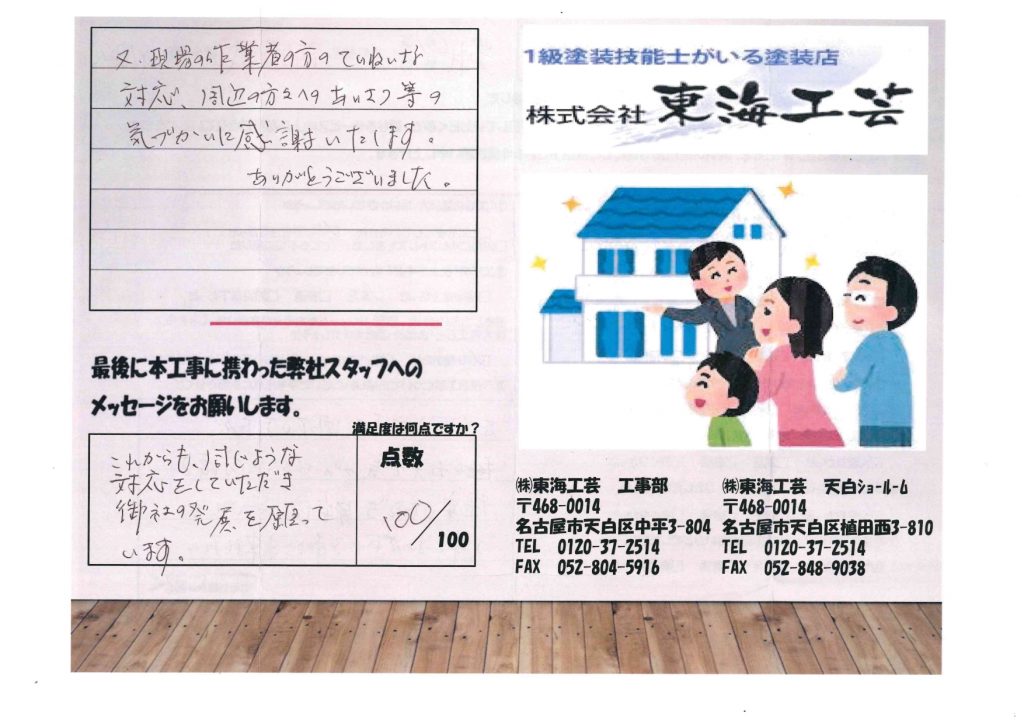 又、現場の作業者の方のていねいな
対応、周辺の方々へのあいさつ等の
気づかいに感謝いたします。
ありがとうございました。
最後に本工事に携わった弊社スタッフへの
メッセージをお願いします。
満足度は何点ですか?
点数
100/100
これからも、同じような
対応をしていただき
御社の発展を願って
います。
1級塗装技能士がいる塗装店
株式会社 東海工芸
㈱東海工芸 工事部
〒468-0014
名古屋市天白区中平3-804
TEL 0120-37-2514
FAX 052-804-5916
㈱東海工芸 天白ショールーム
〒468-0014
名古屋市天白区植田西3-810
TEL 0120-37-2514
FAX 052-848-9038